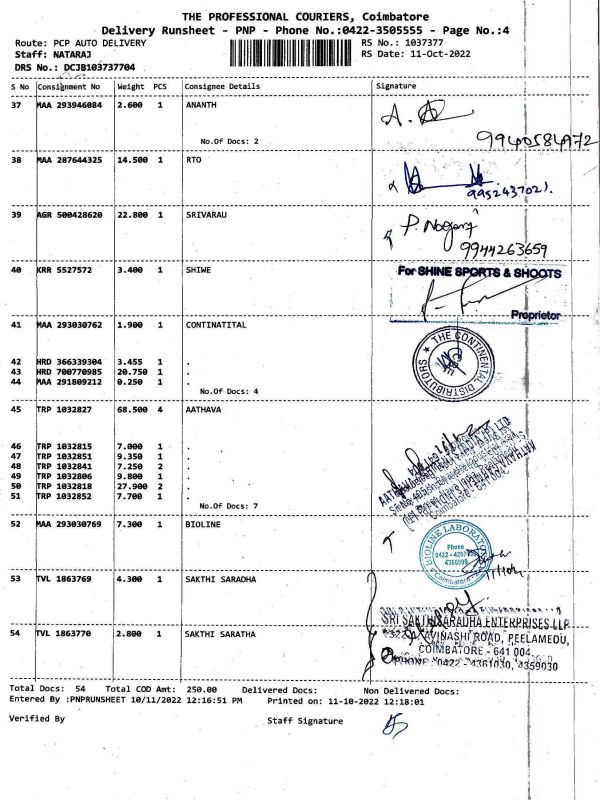 THE PROFESSIONAL COURIERS, Coimbatore
Delivery Runsheet - PNP - Phone No.:0422-3505555 - Page No.:4
Route: PCP AUTO DELIVERY RS No.: 1037377
Staff: NATARAJ RS Date: 11-Oct-2022
DRS No.: DCJB103737704
S No Consignment No Weight PCS Consignee Details Signature
37 MAA 293946084 2.600 1 ANANTH
No.Of Docs: 2 9940584972
38 MAA 287644325 14.500 1 RTO
39 AGR 500428620 22.800 1 SRIVARAU
9944263659
40 KRR 5527572 3.400 1 SHIWE For SHINE SPORTS & SHOOTS
Proprietor
41 MAA 293030762 1.900 1 CONTINATITAL
THE CONTINENTAL DISTRIBUTORS
42 HRD 366339304 3.455 1 .
43 HRD 700770985 20.750 1 .
44 MAA 291809212 0.250 1 .
No.Of Docs: 4
45 TRP 1032827 68.500 4 AATHAVA
46 TRP 1032815 7.000 1 .
47 TRP 1032851 9.350 1 .
48 TRP 1032841 7.250 2 .
49 TRP 1032806 9.800 1 .
50 TRP 1032818 27.900 2 .
51 TRP 1032852 7.700 1 .
No.Of Docs: 7
52 MAA 293030769 7.300 1 BIOLINE
Phone
Coimbatore
53 TVL 1863769 4.300 1 SAKTHI SARADHA
SRI SAKTHI SARADHA ENTERPRISES LLP
AVINASHI ROAD, PEELAMEDU,
54 TVL 1863770 2.800 1 SAKTHI SARATHA
COIMBATORE - 641 004
PHONE: 0422 - 4361030, 4359030
Total Docs: 54 Total COD Amt: 250.00 Delivered Docs: Non Delivered Docs:
Entered By :PNPRUNSHEET 10/11/2022 12:16:51 PM Printed on: 11-10-2022 12:18:01
Verified By Staff Signature